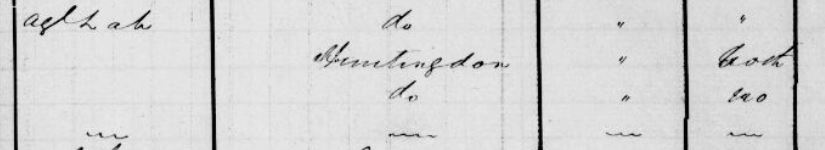 agl Lab do " "
Huntingdon " both
do " no
" " " "